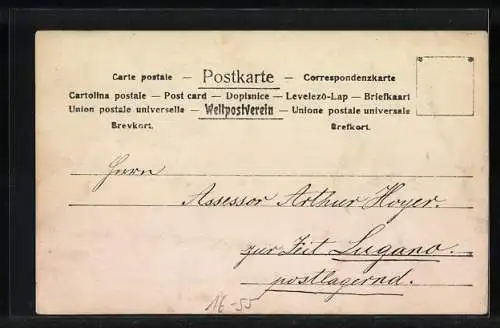 Carte postale — Postkarte — Correspondenzkarte
Cartolina postale — Post card — Dopisnice — Levelező-Lap — Briefkaart
Union postale universelle — Weltpostverein — Unione postale universale
Brevkort. Brefkort.
Herrn
Assessor Arthur Hoyer.
zur Zeit Lugano.
postlagernd.
16-55